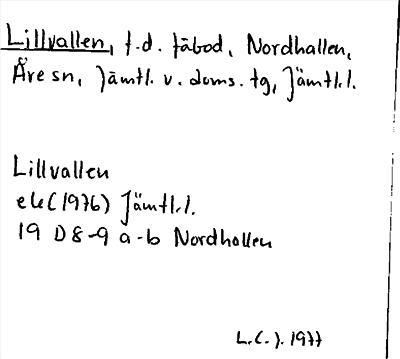 Lillvallen, f.d. fäbod, Nordhallen,
Åre sn, Jämtl. v. doms. tg, Jämtl.l.
Lillvallen
ek (1976) Jämtl.l.
19 D 8-9 a-b Nordhallen
L.C.J. 1977